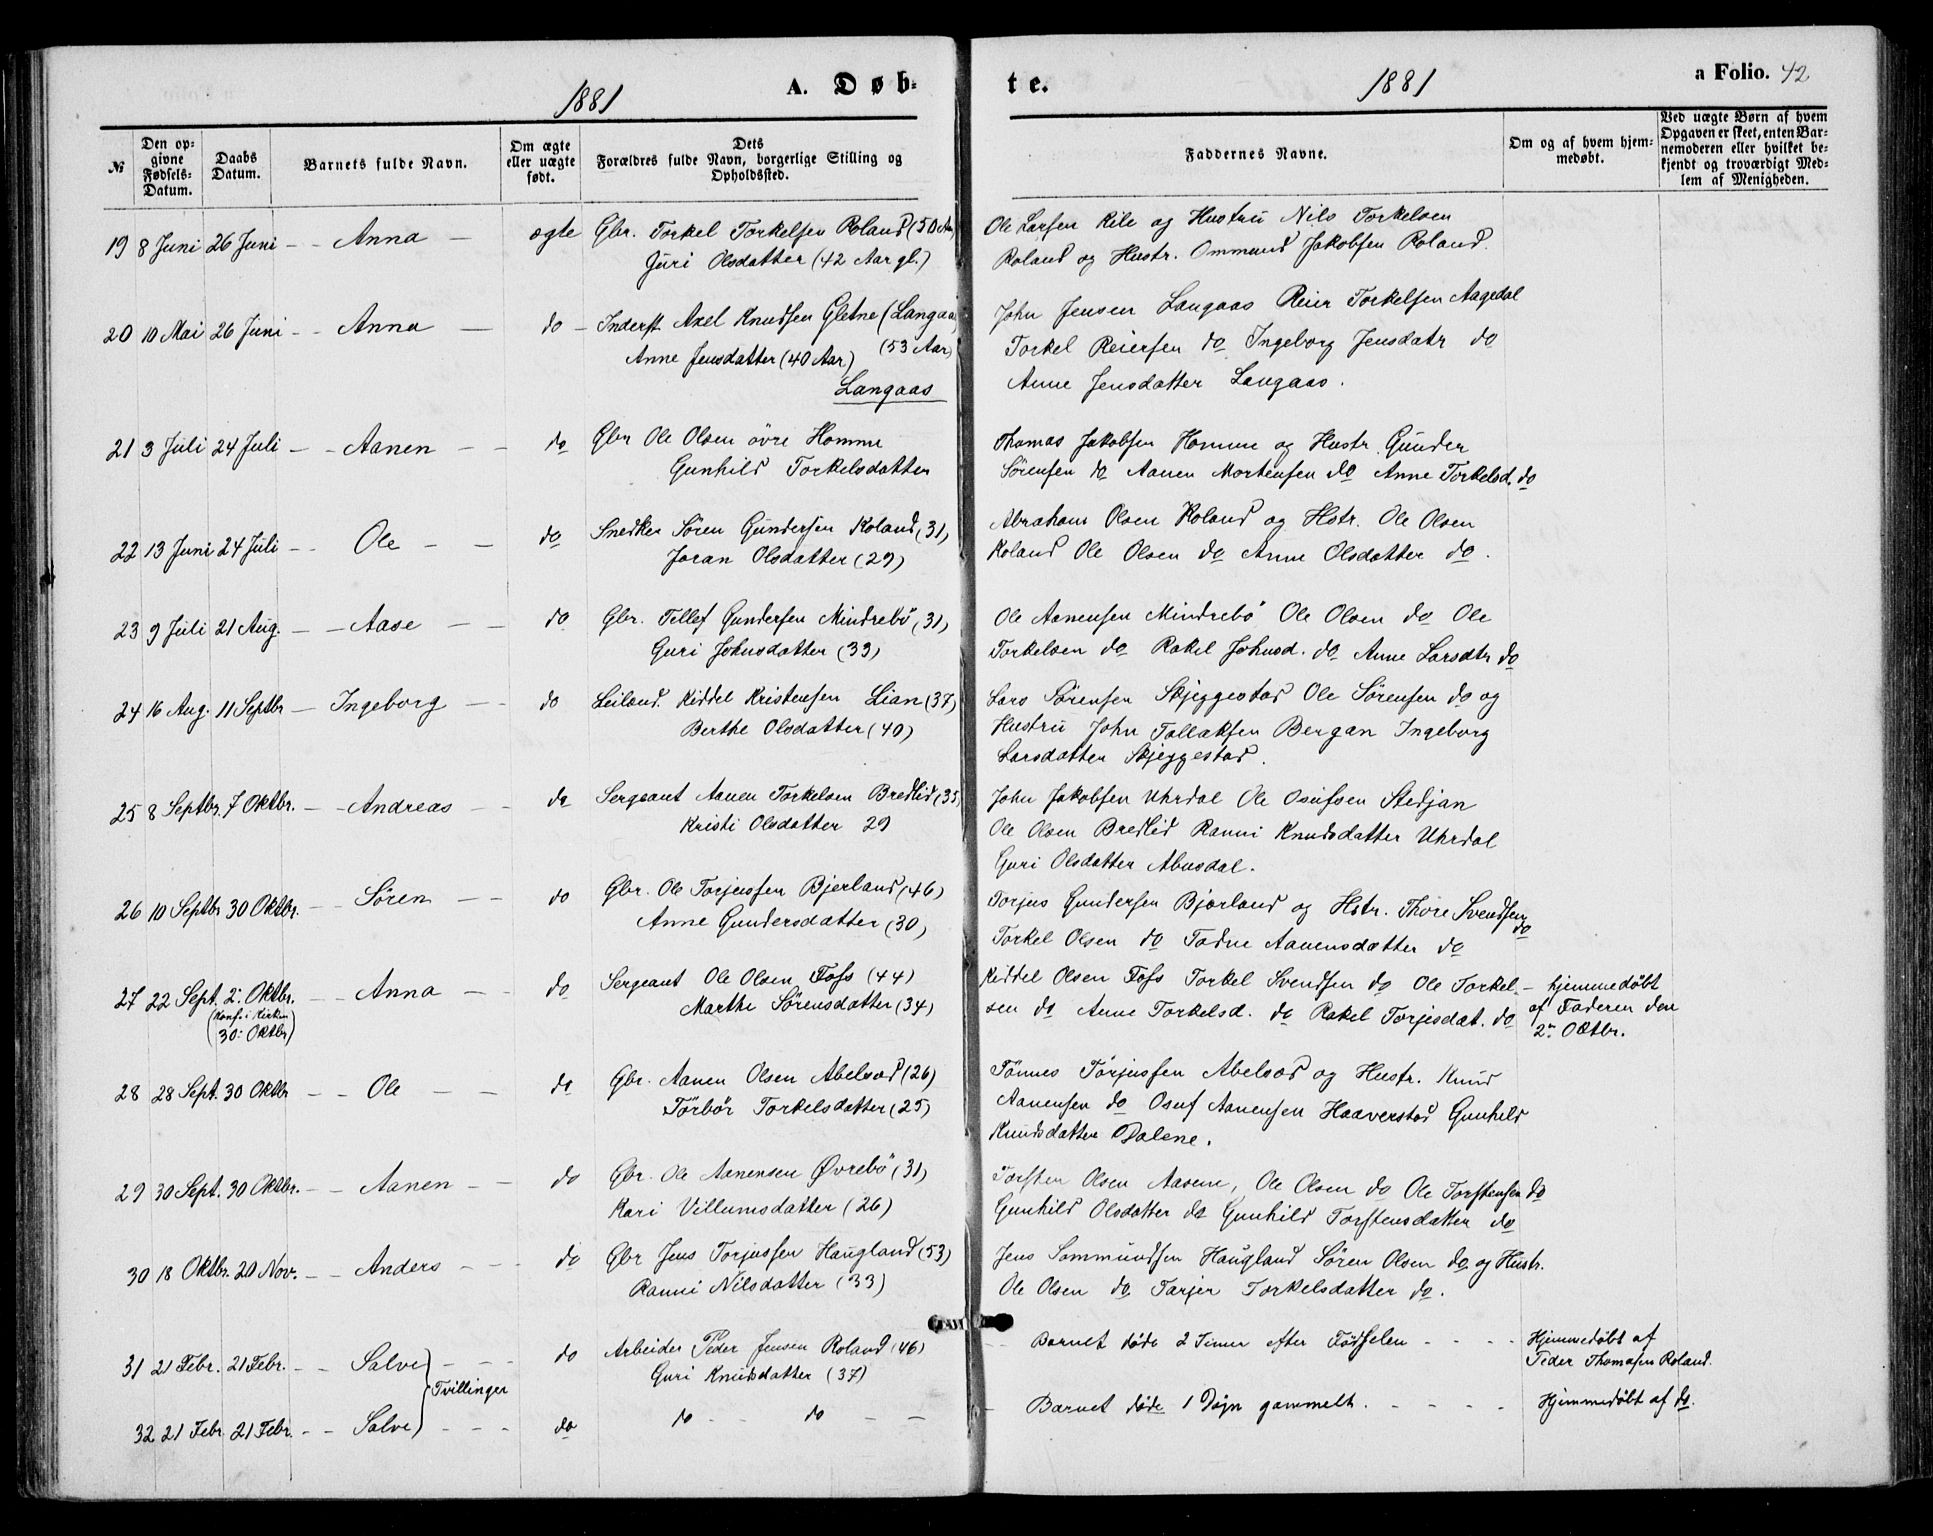 1881 A. Døb-
te. 1881 a Folio. 42
№
Den opgivne Fødsels-Datum.
Daabs Datum.
Barnets fulde Navn.
Om ægte eller uægte født.
Dets Forældres fulde Navn, borgerlige Stilling og Opholdssted.
Faddernes Navne.
Om og af hvem hjemmedøbt.
Ved uægte Børn af hvem Opgaven er skeet, enten Barnemoderen eller hvilket bekjendt og troværdigt Medlem af Menigheden.
19 8 Juni 26 Juni - - Anna - ægte Gbr. Torkel Torkelsen Roland (50 Aar)
Guri Olsdatter (42 Aar gl.)
Ole Larsen Kile og Hustru Nils Torkelsen
Roland og Hustr. Ommund Jakobsen Roland.
20 10 Mai 26 Juni - - Anna - do - Inderst Axel Knudsen Gletne (Langaas
Anne Jensdatter (40 Aar) (53 Aar)
Langaas
John Jensen Langaas Reier Torkelsen Aagedal
Torkel Reiersen do Ingeborg Jensdatr do
Anne Jensdatter Langaas.
21 3 Juli 24 Juli - - Aanen - - do Gbr Ole Olsen övre Homme
Gunhild Torkelsdatter
Thomas Jakobsen Homme og Hustr. Gunder
Sørensen do Aanen Mortensen do Anne Torkelsd. do
22 13 Juni 24 Juli - - Ole - - do Snedker Sören Gundersen Roland (31)
Joran Olsdatter (29)
Abraham Olsen Roland og Hstr. Ole Olsen
Roland Ole Olsen do Anne Olsdatter do.
23 9 Juli 21 Aug. - - Aase - - do Gbr. Tellef Gundersen Mindrebö (31)
Guri Johnsdatter (33)
Ole Aanensen Mindrebö Ole Olsen do Ole
Torkelsen do Rakel Johnsd. do Anne Larsdtr do
24 16 Aug. 11 Septbr - Ingeborg - - do Leiland. Kiddel Kristensen Lian (37)
Berthe Olsdatter (40)
Lars Sørensen Skjeggestad Ole Sørensen do og
Hustru John Tallaksen Bergan Ingeborg
Larsdatter Skjeggestad.
25 8 Septbr. 7 Oktbr. - - Andreas - - do Sergeant Aanen Torkelsen Bredlid (35)
Kristi Olsdatter 29
John Jakobsen Uhrdal Ole Osufsen Stedjan
Ole Olsen Bredlid Ranni Knudsdatter Uhrdal
Guri Olsdatter Abusdal.
26 10 Septbr 30 Oktbr. - - Sören - - do Gbr. Ole Torjussen Bjerland (46)
Anne Gundersdatter (30)
Torjus Gundersen Bjorland og Hstr. Thore Svendsen do
Torkel Olsen do Tadne Aanensdatter do
27 22 Sept. 2: Oktbr. - - Anna - - do Sergeant Ole Olsen Fofs (44)
(Konf. i Kirken
30: Oktbr)
Marthe Sörensdatter (34)
Kiddel Olsen Fofs Torkel Svendsen do Ole Torkel- - hjemmedöbt
sen do Anne Torkelsd. do Rakel Torjusdat. do af Faderen den
2n Oktbr.
28 28 Sept. 30 Oktbr - - Ole - - do Gbr. Aanen Olsen Abelsæd (26)
Törbör Torkelsdatter (25)
Tönnes Törjussen Abelsæd og Hustr. Knud
Aanensen do Osuf Aanensen Haaverstad Gunhild
Knudsdatter Dalene.
29 30 Sept. 30 Oktbr. - - Aanen - - do Gbr. Ole Aanensen Øvrebö (31)
Kari Villumsdatter (26)
Torsten Olsen Aasene, Ole Olsen do Ole Torstensen do
Gunhild Olsdatter do Gunhild Torstensdatter do
30 18 Oktbr. 20 Nov. - - Anders - - do Gbr Jens Torjussen Haugland (53)
Ranni Nilsdatter (33)
Jens Sommundsen Haugland Sören Olsen do og Hustr.
Ole Olsen do Tarjer Torkelsdatter do.
31 21 Febr. 21 Febr. - - Salve - - - do Arbeider Peder Jensen Roland (46)
Tvillinger
Guri Knudsdatter (37)
Barnet döde 2 Timer efter Födselen - - - - Hjemmedöbt af
Peder Thomasen Roland.
32 21 Febr. 21 Febr. - - Salve - - - do do - - do - -
Barnet döde 1 Døgn gammelt. - - - - Hjemmedöbt af do.